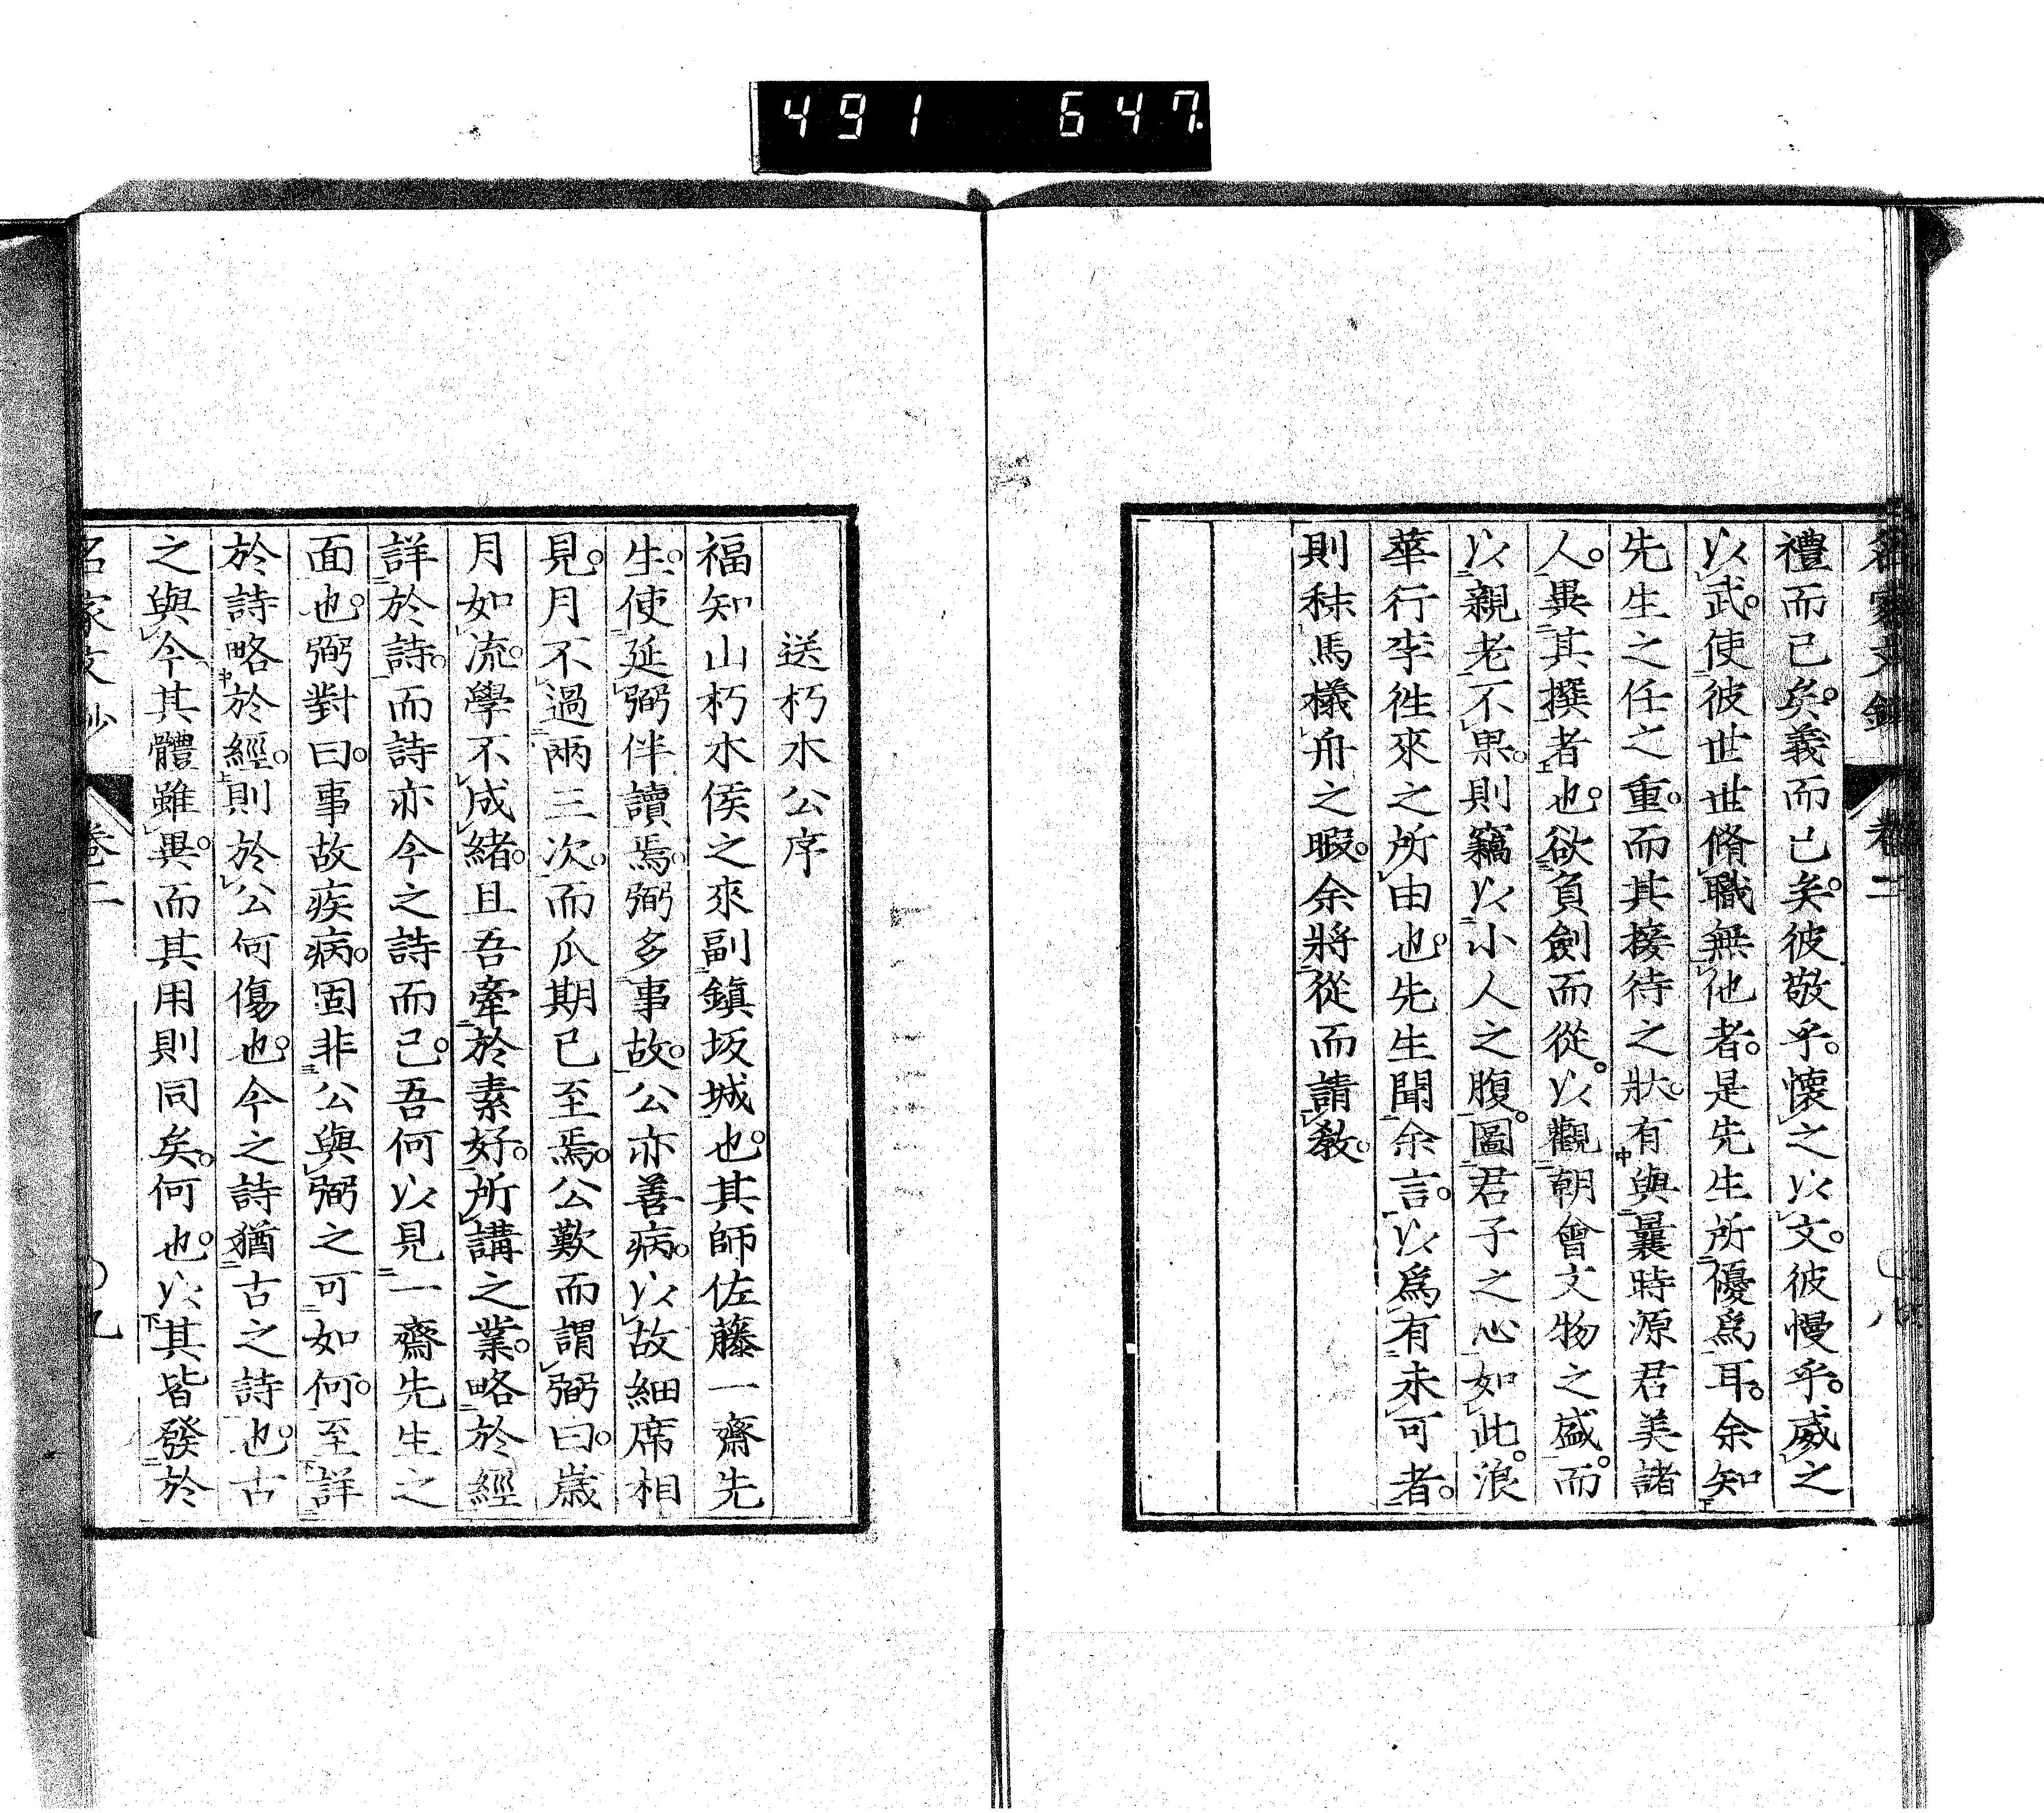 491 647.
名家文鈔 卷二
禮而已矣。義而已矣。彼敬乎。懷之以文。彼慢乎。威之
以武。使彼世世脩職無他者。是先生所優爲耳。余知
先生之任之重。而其接待之狀。有與曩時源君美諸
人。異其撰者也。欲負劍而從。以觀朝會文物之盛。而
以親老不果。則竊以小人之腹。圖君子之心如此。浪
華行李徃來之所由也。先生聞余言。以爲有未可者。
則秣馬檥舟之暇。余將從而請敎。
送朽木公序
福知山朽木侯之來副鎭坂城也。其師佐藤一齋先
生。使延弼伴讀焉。弼多事故。公亦善病。以故細席相
見。月不過兩三次。而瓜期已至焉。公歎而謂弼曰。歲
月如流。學不成緒。且吾牽於素好。所講之業。略於經
詳於詩。而詩亦今之詩而已。吾何以見一齋先生之
面也。弼對曰。事故疾病。固非公與弼之可如何。至詳
於詩略於經。則於公何傷也。今之詩猶古之詩也。古
之與今其體雖異。而其用則同矣。何也。以其皆發於
名家文鈔 卷二 〇九